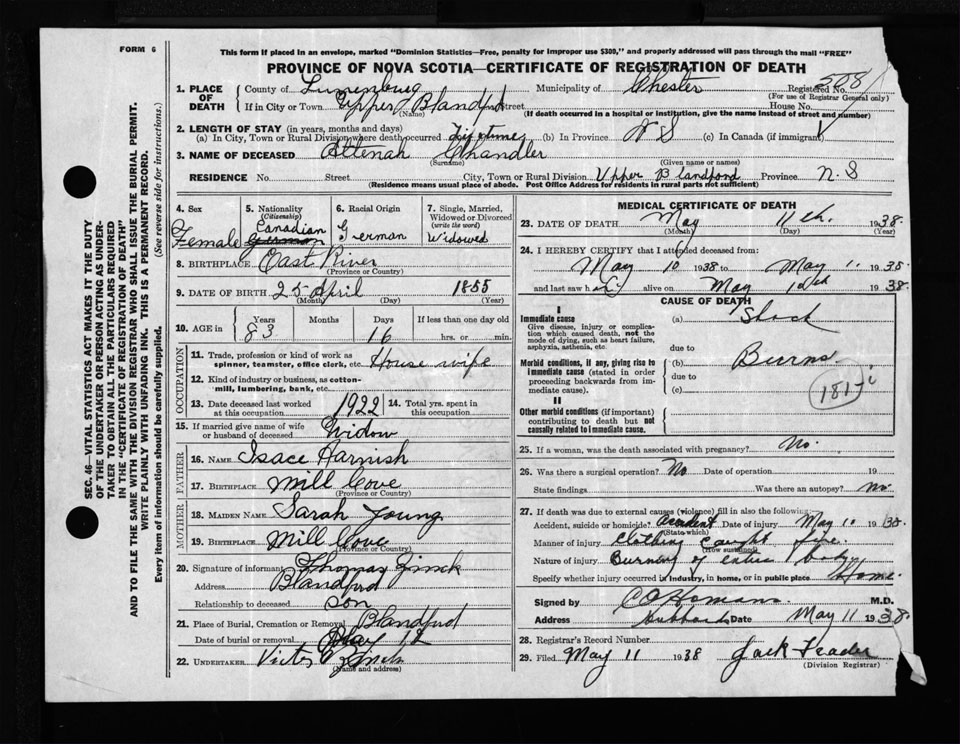 FORM 6
This form if placed in an envelope, marked "Dominion Statistics—Free, penalty for improper use $300," and properly addressed will pass through the mail "FREE"
PROVINCE OF NOVA SCOTIA—CERTIFICATE OF REGISTRATION OF DEATH
SEC. 46—VITAL STATISTICS ACT MAKES IT THE DUTY
OF THE UNDERTAKER OR PERSON ACTING AS UNDER-
TAKER TO OBTAIN ALL THE PARTICULARS REQUIRED
IN THE "CERTIFICATE OF REGISTRATION OF DEATH"
AND TO FILE THE SAME WITH THE DIVISION REGISTRAR WHO SHALL ISSUE THE BURIAL PERMIT.
WRITE PLAINLY WITH UNFADING INK. THIS IS A PERMANENT RECORD.
Every item of information should be carefully supplied. (See reverse side for instructions.)
1. PLACE OF DEATH County of Lunenburg Municipality of Chester Registered No. 508
(For use of Registrar General only)
If in City or Town Upper Blandford Street House No.
(Name) (If death occurred in a hospital or institution, give the name instead of street and number)
2. LENGTH OF STAY (in years, months and days)
(a) In City, Town or Rural Division where death occurred Lifetime (b) In Province N S (c) In Canada (if immigrant)
3. NAME OF DECEASED Attenah Chandler
(Surname) (Given name or names)
RESIDENCE No. Street City, Town or Rural Division Upper Blandford Province N.S
(Residence means usual place of abode. Post Office Address for residents in rural parts not sufficient)
4. Sex Female
5. Nationality (Citizenship) Canadian German
6. Racial Origin German
7. Single, Married, Widowed or Divorced (write the word) Widowed
8. BIRTHPLACE East River
(Province or Country)
9. DATE OF BIRTH 25 April 1855
(Month) (Day) (Year)
10. AGE in Years Months Days If less than one day old
83 16 hrs. or min.
OCCUPATION
11. Trade, profession or kind of work as spinner, teamster, office clerk, etc. House wife
12. Kind of industry or business, as cotton-mill, lumbering, bank, etc.
13. Date deceased last worked at this occupation 1922 14. Total yrs. spent in this occupation
15. If married give name of wife or husband of deceased Widow
FATHER
16. NAME Isace Harnish
17. BIRTHPLACE Mill Cove
(Province or Country)
MOTHER
18. MAIDEN NAME Sarah Young
19. BIRTHPLACE Mill Cove
(Province or Country)
20. Signature of informant Thomas Zinck
Address Blandford
Relationship to deceased son
21. Place of Burial, Cremation or Removal Blandford
Date of burial or removal May 12
22. UNDERTAKER Victor Zinck
(Name and address)
MEDICAL CERTIFICATE OF DEATH
23. DATE OF DEATH May 11th 1938
(Month) (Day) (Year)
24. I HEREBY CERTIFY that I attended deceased from:
May 10 1938 to May 11 1938
and last saw her alive on May 10th 1938
CAUSE OF DEATH
I
Immediate cause (a) Shock
Give disease, injury or complication which caused death, not the mode of dying, such as heart failure, asphyxia, asthenia, etc.
due to
Morbid conditions, if any, giving rise to immediate cause (stated in order proceeding backwards from immediate cause). (b) Burns
due to
(c)
181
II
Other morbid conditions (if important) contributing to death but not causally related to immediate cause.
25. If a woman, was the death associated with pregnancy? No.
26. Was there a surgical operation? No Date of operation 19
State findings Was there an autopsy? no
27. If death was due to external causes (violence) fill in also the following:
Accident, suicide or homicide? Accident Date of injury May 10 1938
(State which)
Manner of injury Clothing caught fire
(How sustained)
Nature of injury Burning of entire body
Specify whether injury occurred in industry, in home, or in public place Home
Signed by C O Homans M.D.
Address Hubbards Date May 11 1938
28. Registrar's Record Number
29. Filed May 11 1938 Jack Feader
(Division Registrar)